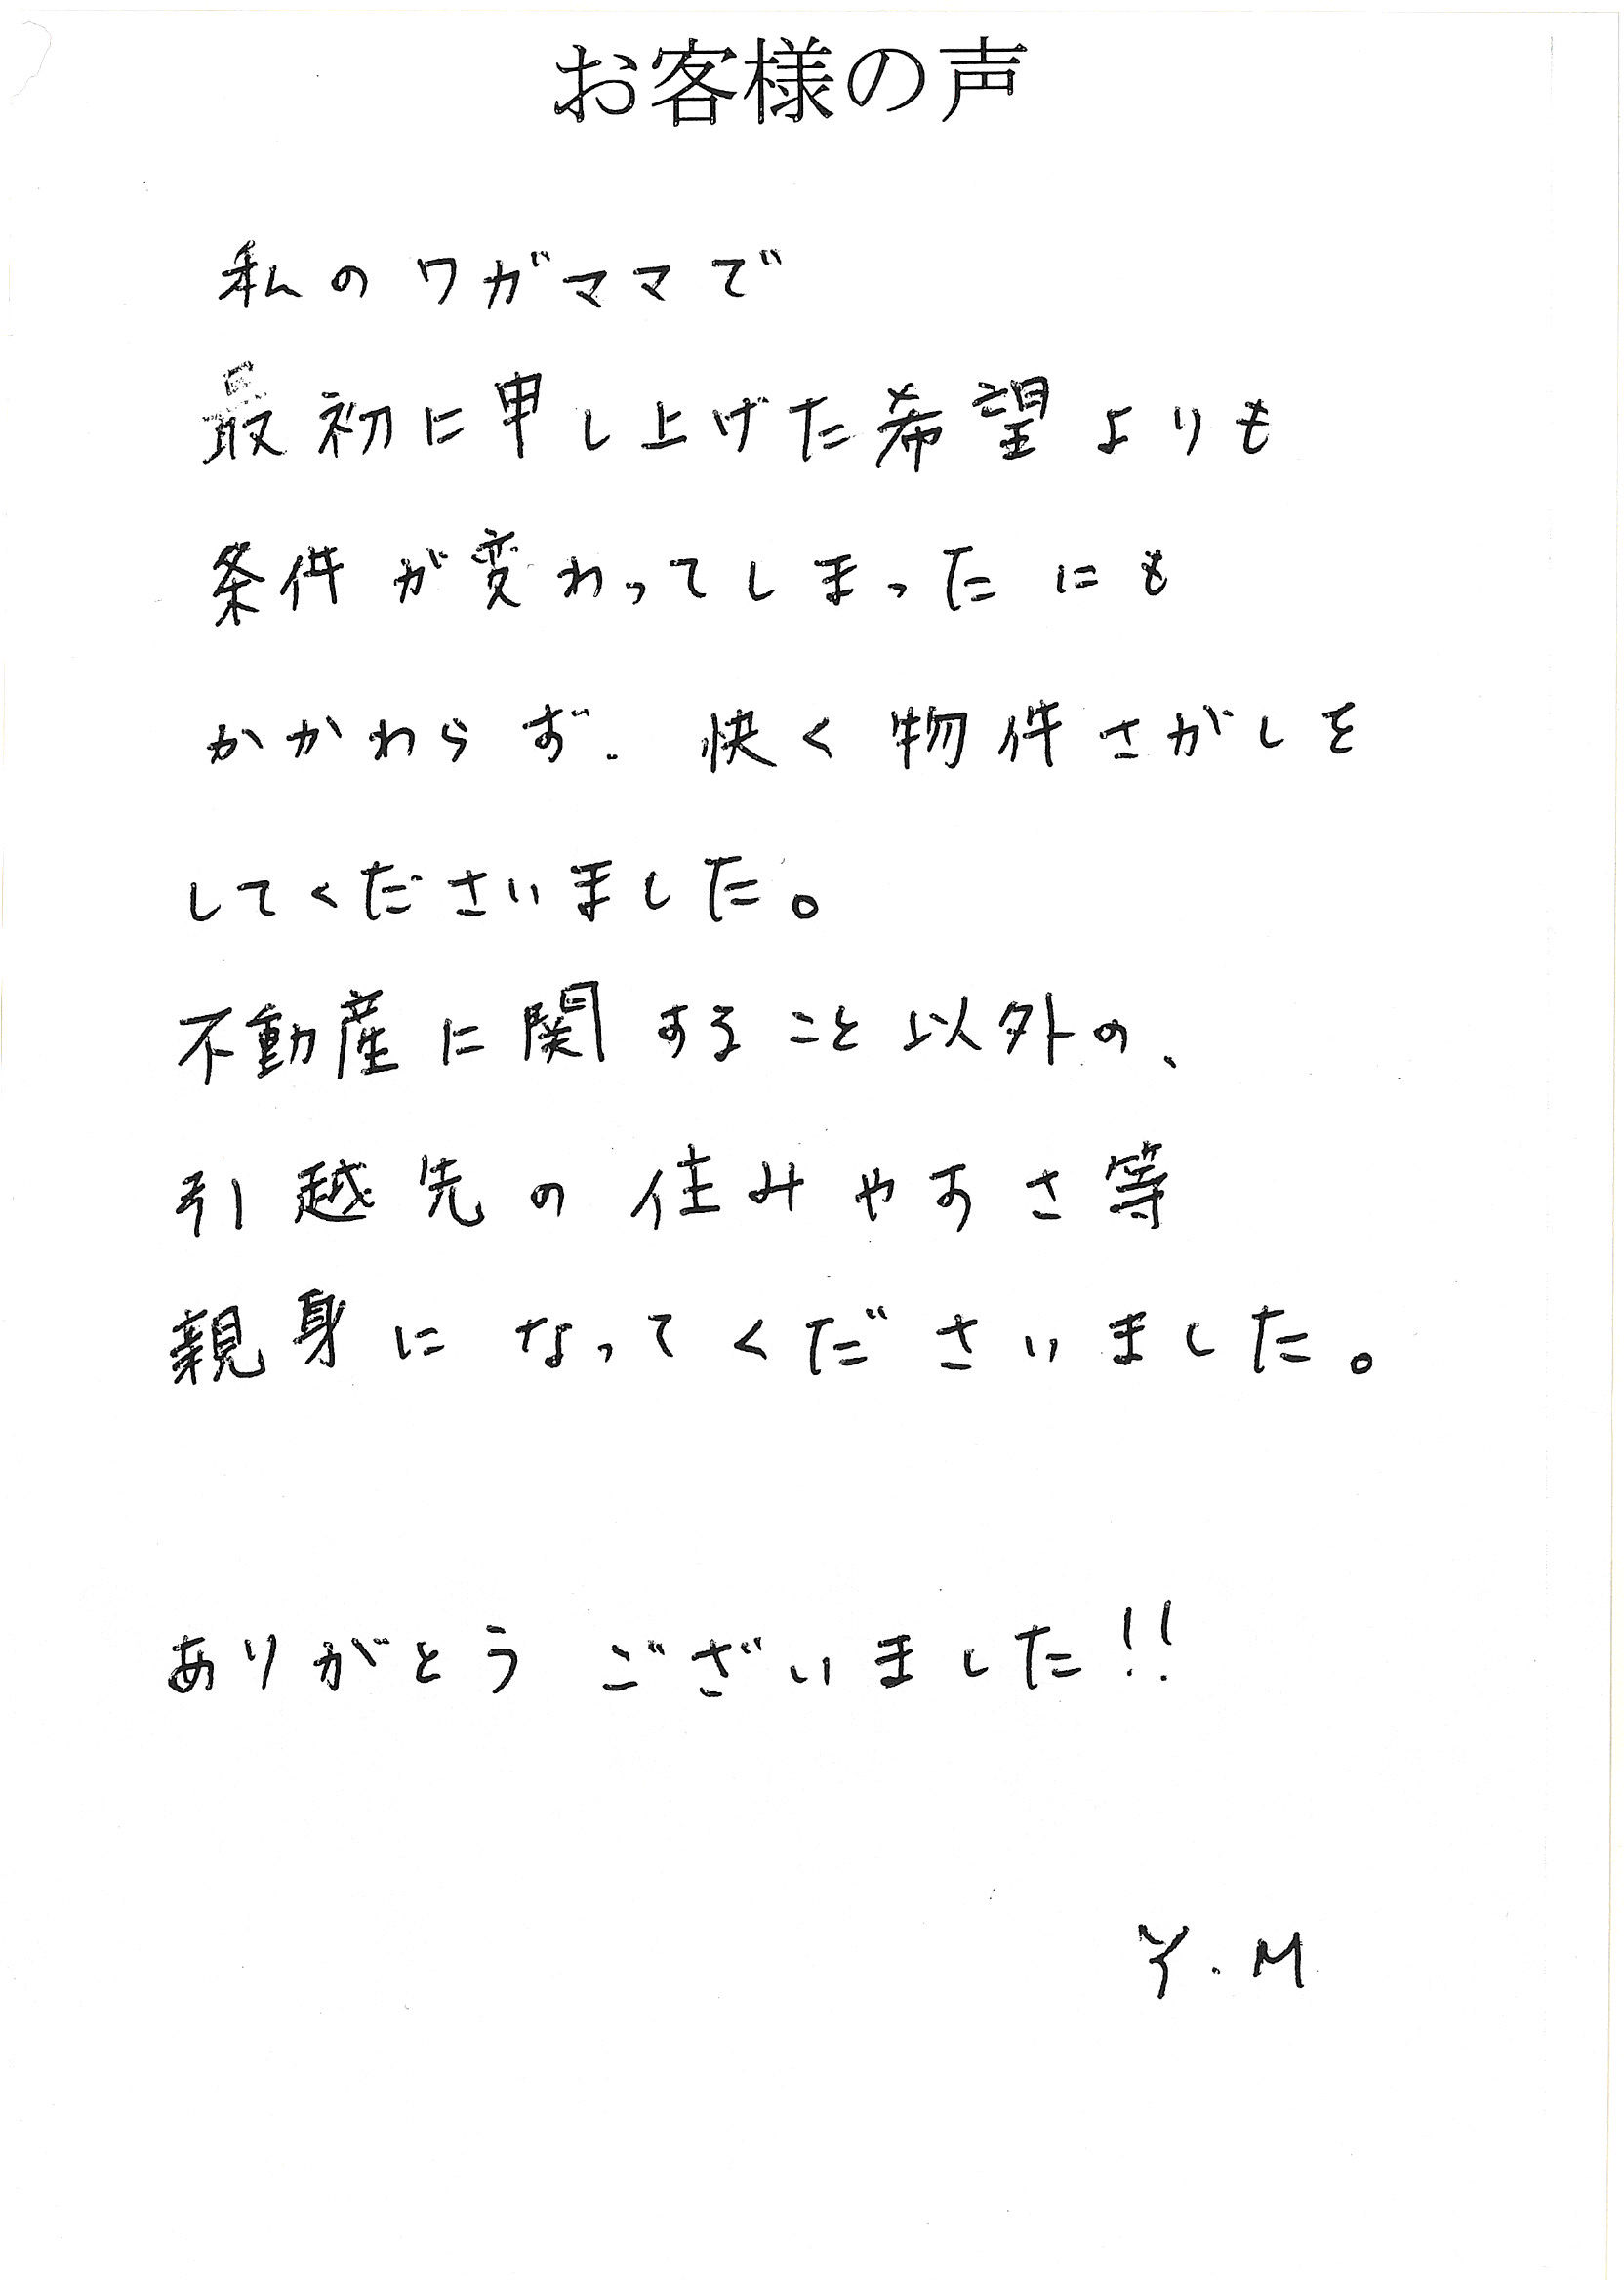 お客様の声
私のワガママで
最初に申し上げた希望よりも
条件が変わってしまったにも
かかわらず、快く物件さがしを
してくださいました。
不動産に関すること以外の、
引越先の住みやすさ等
親身になってくださいました。
ありがとうございました!!
Y.M